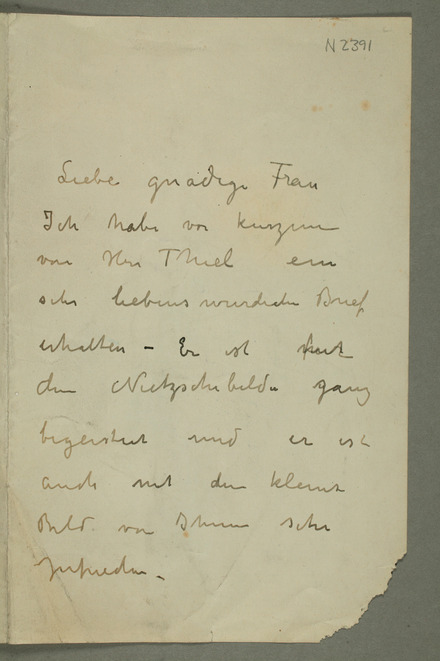 N 2391
Liebe gnädige Frau
Ich habe vor kurzem
von Herr Thiel ein
sehr liebenswürdichen Brief
erhalten – Er ist mit
dem Nietzschebilde ganz
begeistert und er ist
auch mit dem kleinen
Bild von Ihnen sehr
zufrieden.